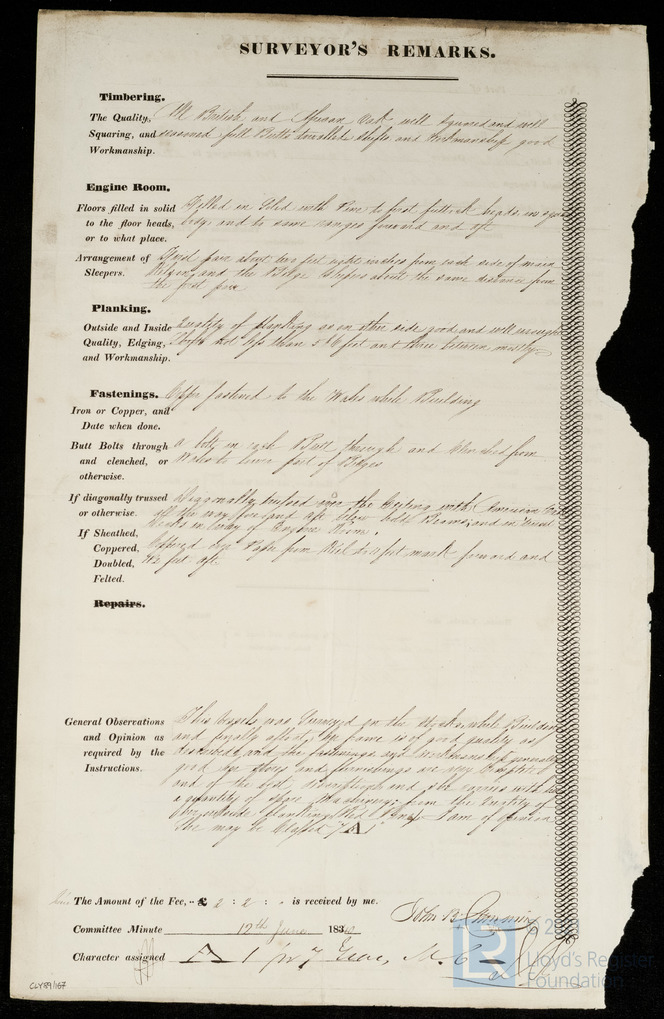 SURVEYOR'S REMARKS.
Timbering.
The Quality, British and African Oak well squared and well
Squaring, and seasoned full Butts shifts and workmanship good
Workmanship.
Engine Room.
Floors filled in solid Filled in Solid with Pine to first futtock heads in
to the floor heads, body and to some ranges forward and aft
or to what place.
Arrangement of first pair about two feet eight inches from each side of main
Sleepers. and the Bilge sleepers about the same distance from
the first pair
Planking.
Outside and Inside Quality of planking as on other side good and well wrought
Quality, Edging, Shifts not less than 5 feet and three between mostly
and Workmanship.
Fastenings. Copper fastened to the Wales while Building
Iron or Copper, and
Date when done.
Butt Bolts through a bolt in each Butt through and clenched from
and clenched, or Wales to lower part of Bilges
otherwise.
If diagonally trussed Diagonally trussed over the Ceiling with American
or otherwise. all the way fore and aft below Beams and in
If Sheathed, of Engine Room.
Coppered, Coppered over from Keel to feet mark forward and
Doubled, feet aft
Felted.
Repairs.
General Observations This Vessel was Surveyed on the Stocks while Building
and Opinion as and finally afloat, the frame is of good quality as
required by the described, and the fastenings and workmanship generally
Instructions. good the stores and furnishings are very complete
and of the best description and she carries with her
a quantity of spare Machinery; from the quality of
her outside planking Red Pine I am of opinion
She may be Classed 7 A 1
The Amount of the Fee, £ 2 : 2 : is received by me.
John B. Cumming
Committee Minute 12th June 1840
Character assigned A 1 for 7 Years, M. C.
CLY89/167
Lloyd's Register
Foundation